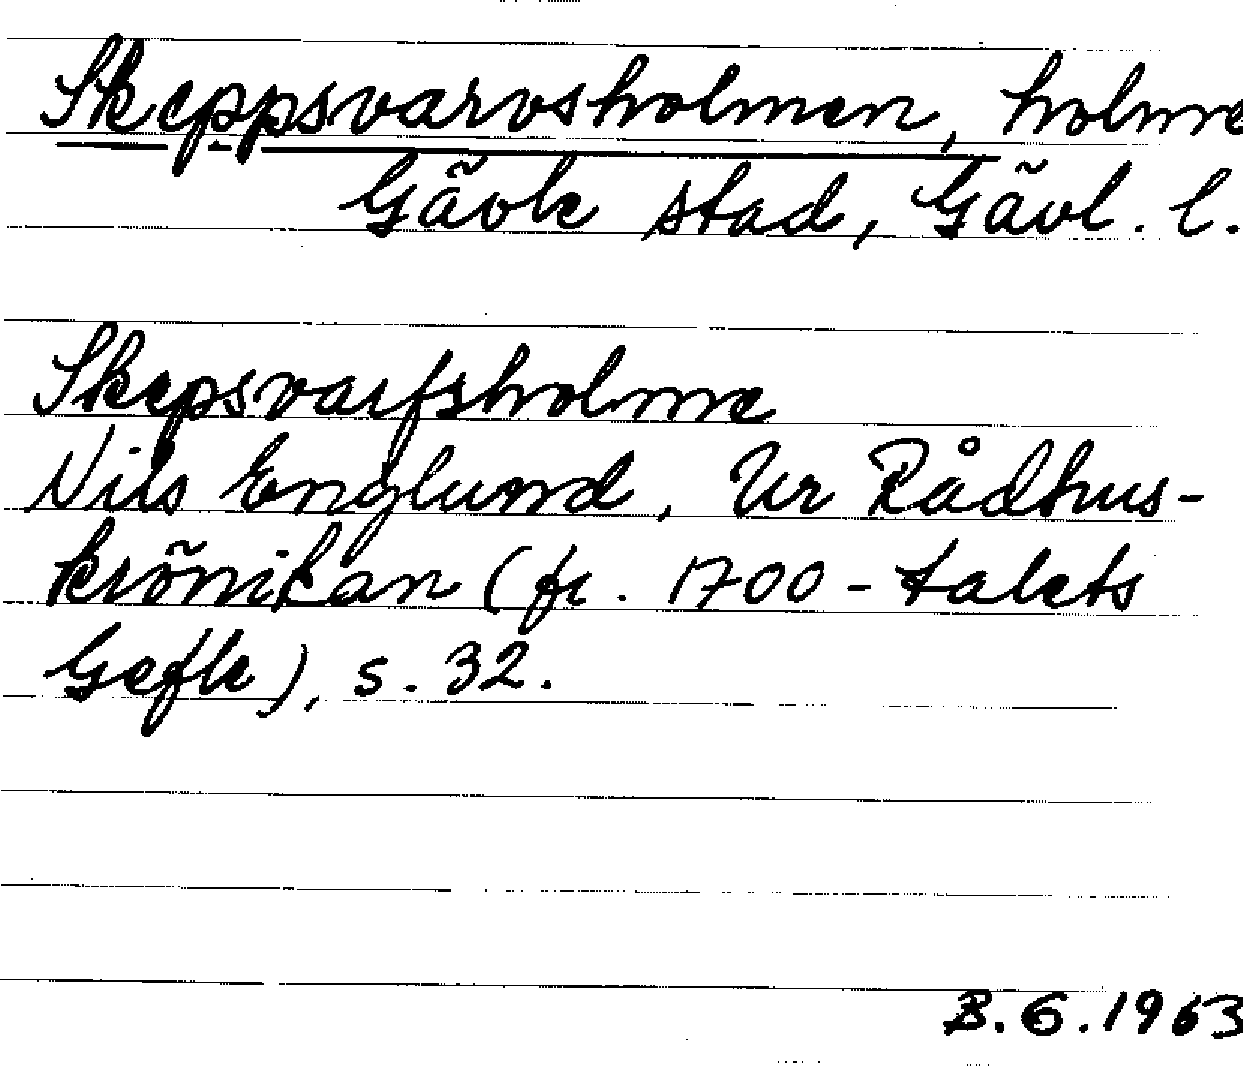 Skeppsvarvsholmen, holme
Gävle stad, Gävl. l.
Skepsvarfsholme
Nils Englund, Ur Rådhus-
krönikan (fr. 1700-talets
Gefle), s. 32.
B. G. 1963